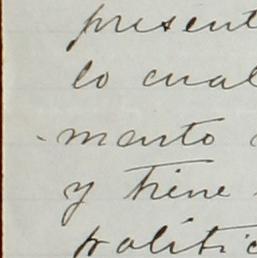 present
lo cual
- manto
y tiene
politic